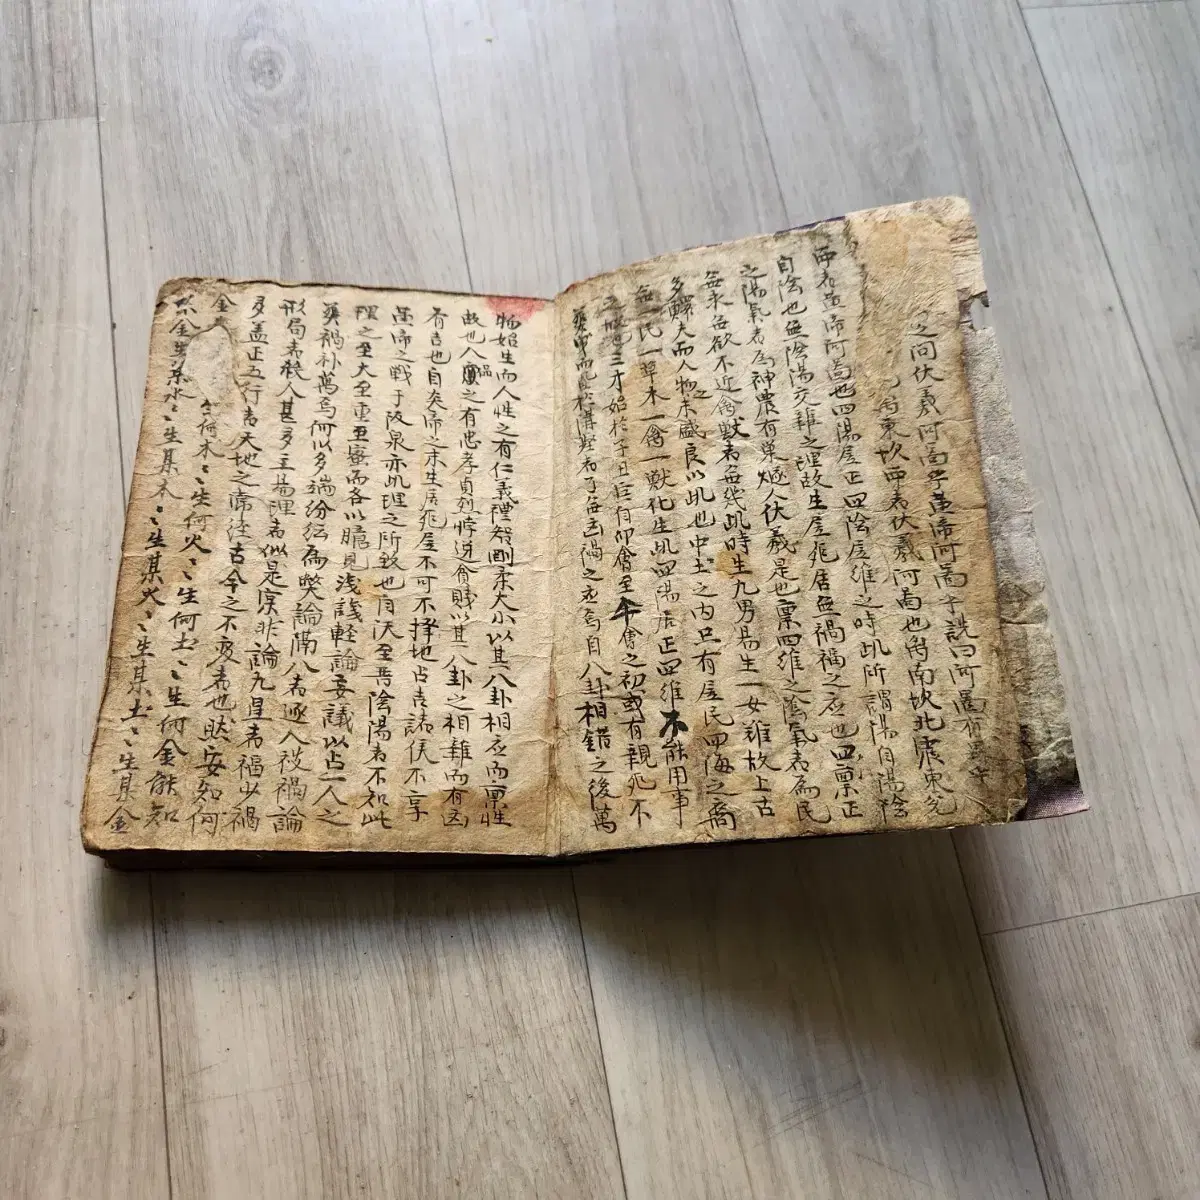 之問伏羲河圖乎黃帝河圖乎說曰河圖有
南東坎西者伏羲河圖也离南坎北震東兌
西者黃帝河圖也四陽居正四陰居維之時此所謂陽自陽陰
自陰也無陰陽交雜之理故生居死居無禍福之应也四稟正
之陽氣者為神農有巢燧人伏羲是也稟四維之陰氣者為民
每求每欲不近禽獸者每幾此時生九男易生一女難故上古
多鰥夫而人物未盛良以此也中土之內只有居民四海之裔
每一民一草木一禽一獸化生此四陽居正四維不能用事
三才始於子丑寅自卯會至午會之初或有親死不
葬 者可每凶禍之应焉自八卦相錯之後萬
物始生而人性之有仁義禮智剛柔大小以其八卦相应而稟性
故也人稟之有忠孝貞烈悖逆貪賤以其八卦之相雜而有凶
有吉也自炎帝之末生居死居不可不擇地占吉諸侯不享
黃帝之戰于阪泉亦此理之所致也自沃至晋陰陽者不知此
理之至大至重至蜜而各以臆見淺識輕論妄議以占一人之
葬禍朴萬焉何以多端紛紜為喫論開八者逐入被禍論
形局者殺人甚多主場理者似是实非論九星者福少禍
多盖正五行者天地之常経古今之不変者也然安知何
金 生何木〻生何火〻生何土〻生何金能知
某金生某水〻生某木〻生某火〻生某土〻生某金